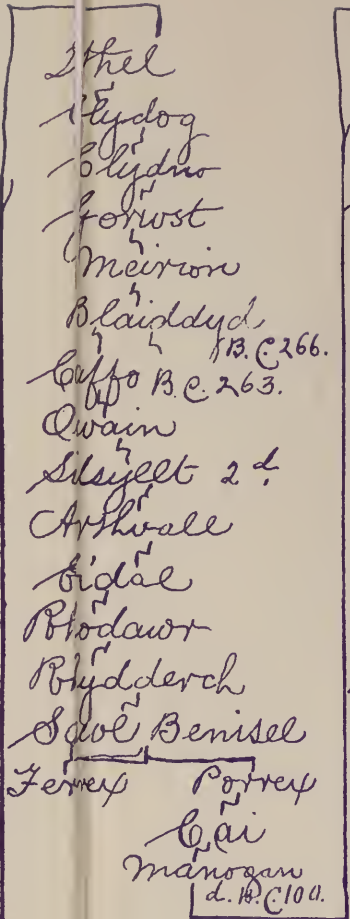 Ithel
Clydog
Clydno
Gorwst
Meirion
Blaiddyd
B.C. 266.
Caffo B.C. 263.
Owain
Silsyllt 2d.
Arthvall
Eidal
Rhodawr
Rhydderch
Sawl Benisel
Ferrex Porrex
Cai
Manogan
d. B.C. 100.